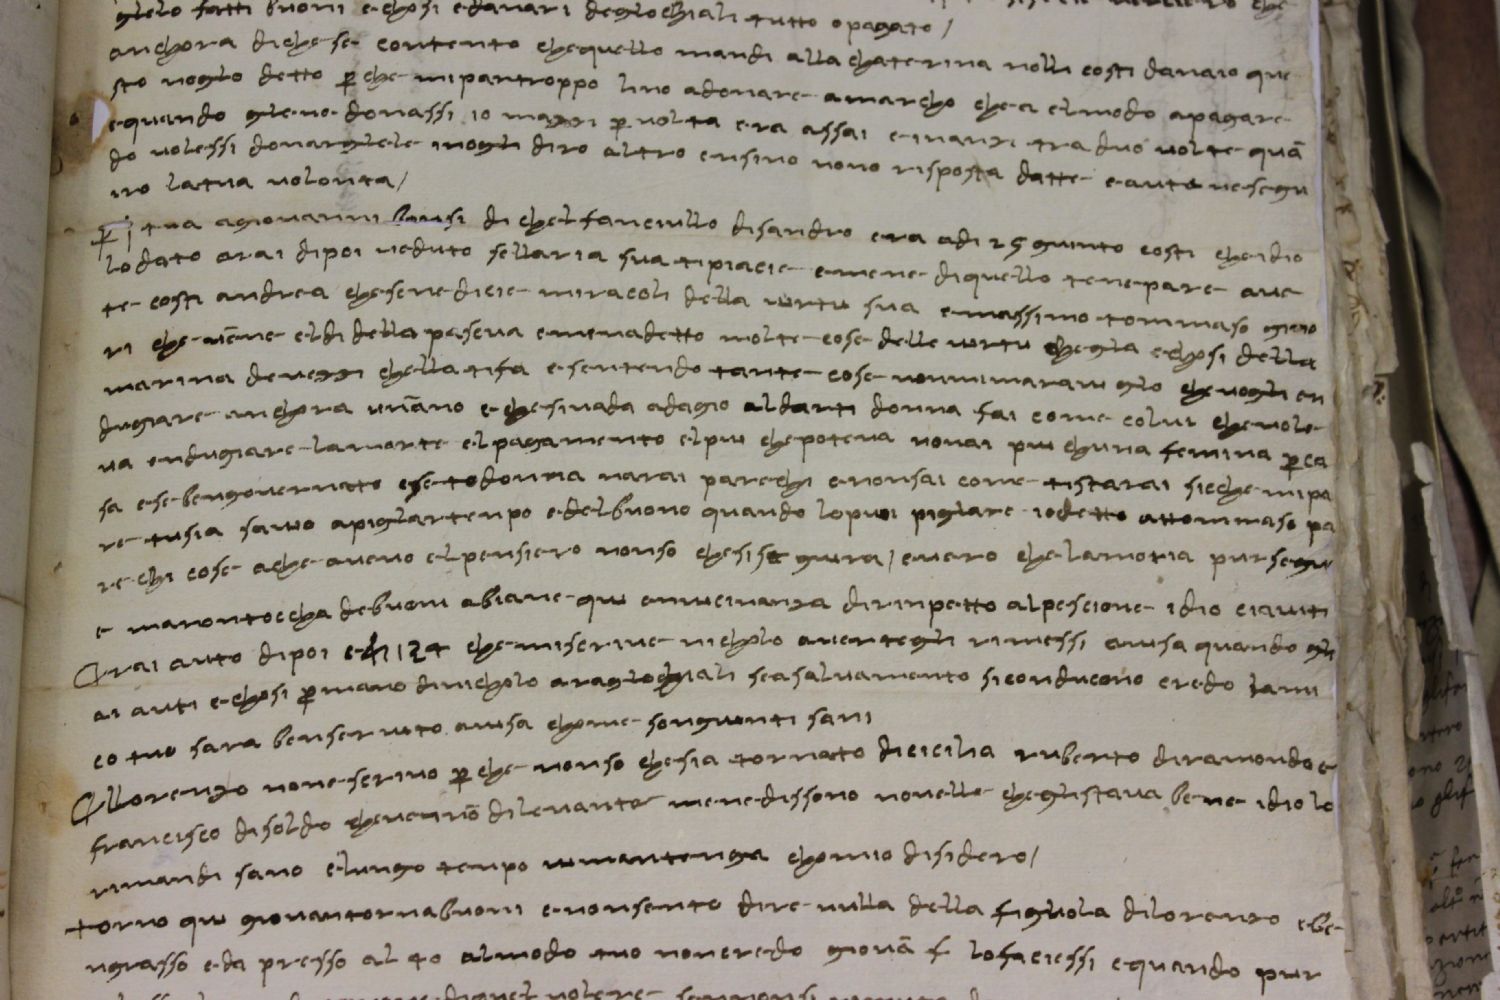 glelo fatti buoni e chosi e danari degl ochiali tutto o pagato /
anchora diche se contento che quello mandi alla chaterina nolli costi danaio que
sto voglo detto perche mi par troppo lino a donare a marcho che a el modo a pagare
e quando gle ne donassi 10 mazzi per volta era assai e inanzi tra duo volte quan
do volessi donarglele inogli diro altro ensino nono risposta datte e auto ne segu
iro la tua volonta /
Per j tua a giovanni di chel fanciullo di sandro era adi 25 gunto costi che idio
lodato arai dipoi veduto sell aria sua ti piacie e mene di quello tene pare ave
te costi andrea che sene dicie miracoli della vertu sua e massimo tommaso gino
ri che venne el di della pascua e me na detto molte cose delle vertu che gla e chosi della
marina de vezzi chella ti fa e sentendo tante cose non mi maraviglo che vogli en
dugiare anchora un anno e che si vada adagio al darti donna fai come colui che vole
va endugiare la morte e l pagamento el piu che poteva non ai piu ch una femina per ca
sa e se ben governato e se to donna narai parechi e non sai come ti starai siche mi pa
re tu sia savio a piglar tenpo e del buono quando lo puoi piglare io detto a ttommaso pa
rechi cose a che avevo el pensiero non so che si seguira / e vero che la moria pur segue
e maronto ccha de buoni abiane qui en vicinanza dirinpetto al pescione idio ci aiuti
Arai auto dipoi e che mi scrive nicholo avertegli rimessi avisa quando gli
ai auti e chosi per mano di nicholo aragl ochiali se a salvamento si conducono credo l ami
co tuo sara ben servito avisa chome son gunti sani
A llorenzo none scrivo perche non so che sia tornato di cicilia ruberto di ramondo e
francisco di soldo che venono di levante mene dissono novelle che gli stava bene idio lo
rimandi sano e lungo tenpo vi mantenga chom io disidero /
torno qui giovan tornabuoni e non sento dire nulla della figluola di lorenzo e be
ngrasso e da presso al 40 al modo tuo non credo giovan f lo faciessi e quando pur